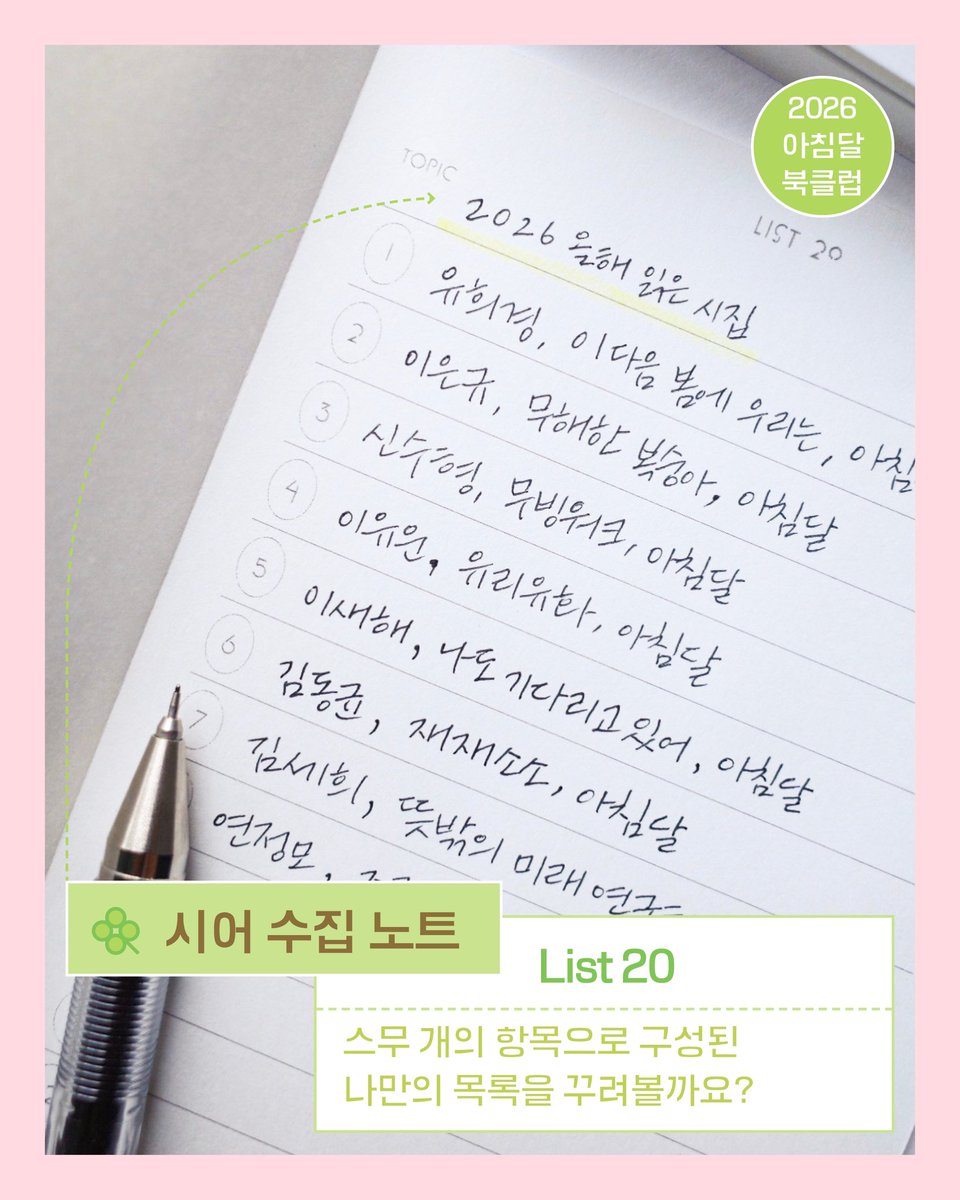 2026
아침달
북클럽
TOPIC
LIST 20
2026 올해 읽은 시집
1
유희경, 이다음 봄에 우리는, 아침
2
이은규, 무해한 복숭아, 아침달
3
신수형, 무빙워크, 아침달
4
이유운, 유리유화, 아침달
5
이새해, 나도 기다리고 있어, 아침달
6
김동균, 재재소소, 아침달
7
김세희, 뜻밖의 미래 연구
연정모,
시어 수집 노트
List 20
스무 개의 항목으로 구성된
나만의 목록을 꾸려볼까요?